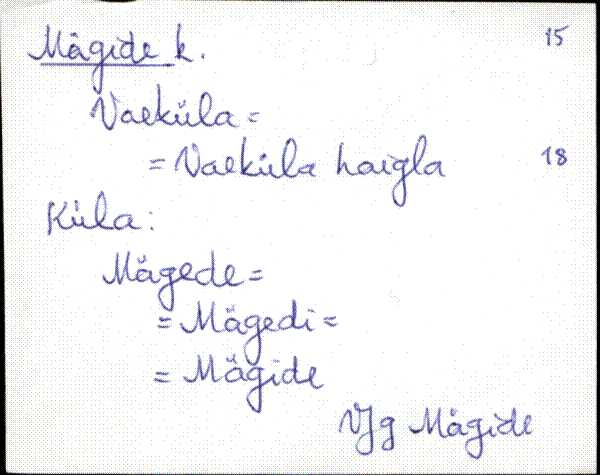 Mägide k. 15
Vaeküla =
= Vaeküla haigla 18
Küla:
Mägede =
= Mägedi =
= Mägide
VJg Mägide